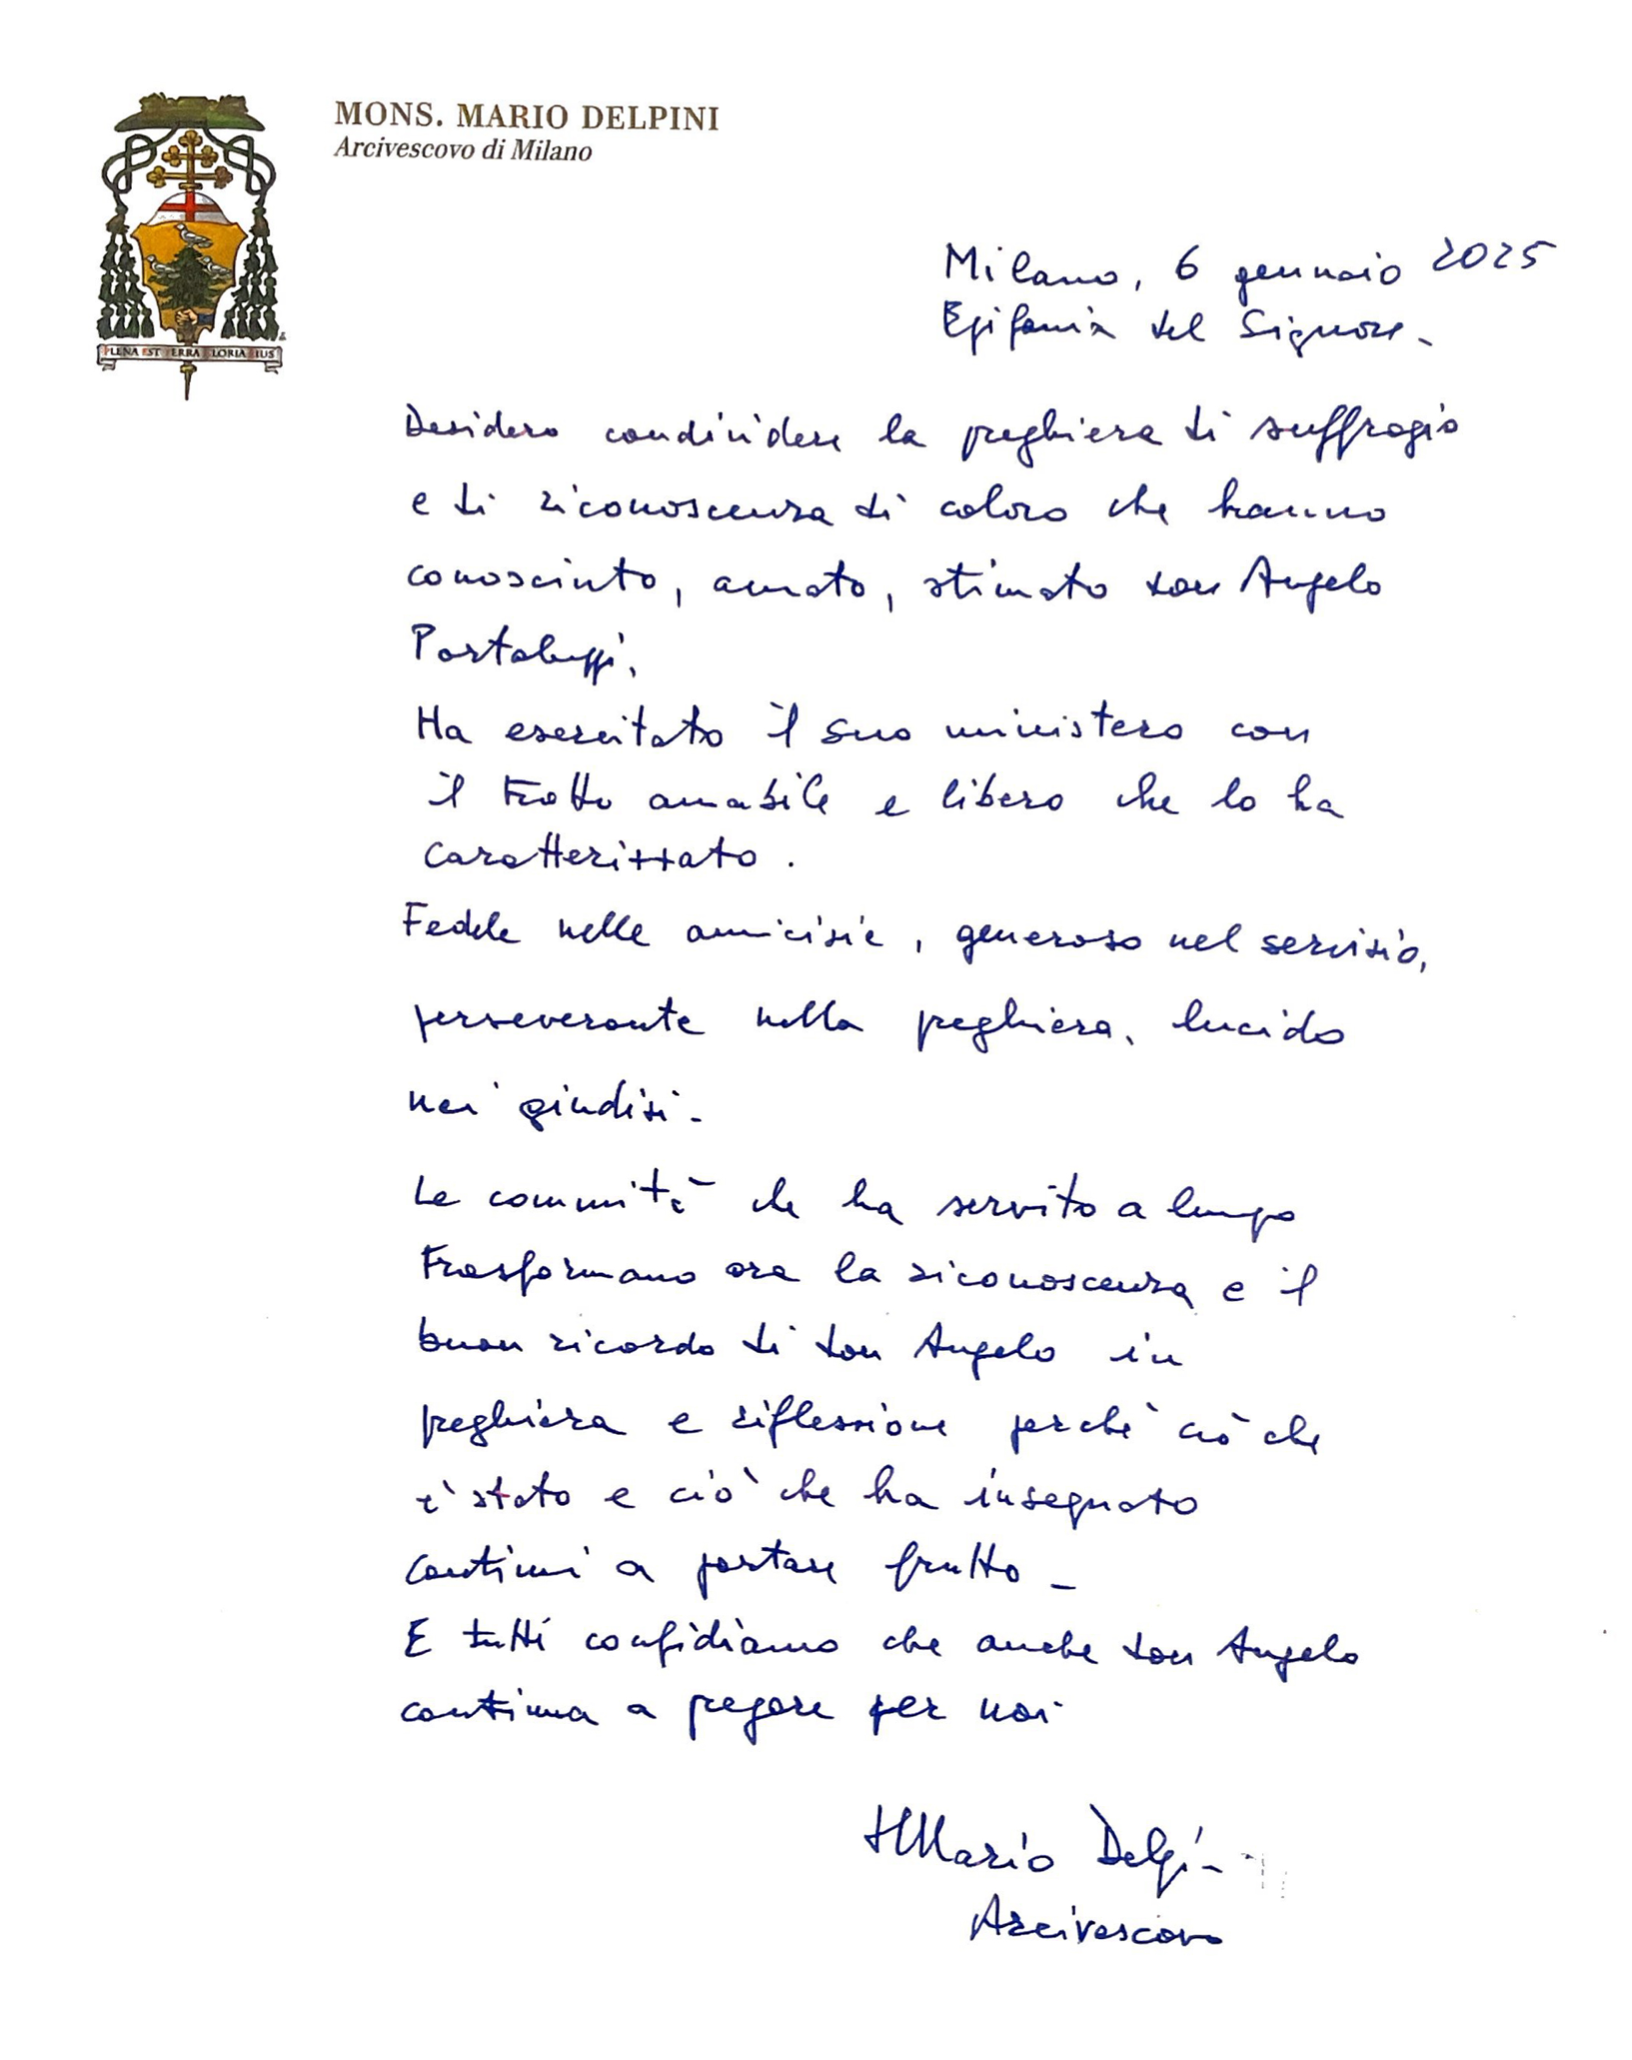 MONS. MARIO DELPINI
Arcivescovo di Milano
PLENA EST TERRA GLORIA EIUS
Milano, 6 gennaio 2025
Epifania del Signore.
Desidero condividere la preghiera di suffragio
e di riconoscenza di coloro che hanno
conosciuto, amato, stimato don Angelo
Portaluppi.
Ha esercitato il suo ministero con
il tratto amabile e libero che lo ha
caratterizzato.
Fedele nelle amicizie, generoso nel servizio,
perseverante nella preghiera, lucido
nei giudizi.
Le comunità che ha servito a lungo
trasformano ora la riconoscenza e il
buon ricordo di don Angelo in
preghiera e riflessione perché ciò che
è stato e ciò che ha insegnato
continui a portare frutto.
E tutti confidiamo che anche don Angelo
continua a pregare per noi
+ Mario Delpini
Arcivescovo